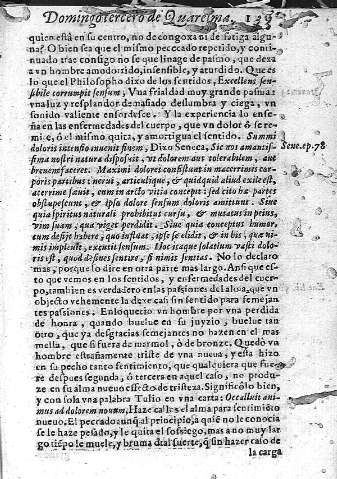 Domingo tercero de Quaresma. 139
quien està en su centro, no de congoxa ni de fatiga algu-
na? O bien sea que el mismo peccado repetido, y conti-
nuado trae consigo no se que linage de pasmo, que dexa
a vn hombre amodorrido, insensible, y aturdido. Que es
lo que el Philosopho dixo de los sentidos, Excellens sen-
sibile corrumpit sensum, Vna frialdad muy grande pasma:
vna luz y resplandor demasiado deslumbra y ciega, vn
sonido valiente ensordesce. Y la experiencia lo ense-
ña en las enfermedades del cuerpo, que vn dolor ò se re-
mite, ò el mismo quita, y amortigua el sentido. Summi
doloris intentio inuenit finem, Dixo Seneca, Sic nos amantis-
sima nostri natura disposuit, vt dolorem aut tolerabilem, aut
breuem faceret. Maximi dolores consistunt in macerrimis cor-
poris partibus: nerui, articulique, & quidquid aliud exile est,
acerrime sæuit, cum in arcto vitia concepit: sed cito hæ partes
obstupescunt, & ipso dolore sensum doloris amittunt. Siue
quia spiritus naturali prohibitus cursu, & mutatus in peius,
vim suam, qua viget perdidit. Siue quia
Senec. ep. 78
corruptus humor,
cum desijt habere, quo influat, ipse se elidit, & eis, quæ ni-
mis impleuit, excutit sensum. Hoc itaque solatium vasti dolo-
ris est, quod desines sentire, si nimis sentias. No lo declaro
mas, porque lo dire en otra parte mas largo. Ansi que es-
to que vemos en los sentidos, y enfermedades del cuer-
po, tambien es verdadero en las passiones del alma, que vn
objecto vehemente la dexe casi sin sentido para semejan-
tes passiones. Enloquecio vn hombre por vna perdida
de honra, quando buelue en su juyzio, buelue tan
otro, que ya desgracias semejantes no hazen en el mas
mella, que si fuera de marmol, ò de bronze. Quedò vn
hombre estrañamente triste de vna nueua, y esta hizo
en su pecho tanto sentimiento, que qualquiera que fue-
re despues segunda, ò tercera en aquel caso, no produ-
ze en su alma nueuo effecto de tristeza. Significòlo bien,
y con sola vna palabra Tulio en vna carta: Occalluit ani-
mus ad dolorem nouum, Haze callos el alma para sentimiẽto
nueuo. El peccado aunq̃ al principio, a quiẽ no le conocia
se le haze pesado, y le quita el sossiego, mas ano muy lar-
go tiẽpo le muele, y bruma dal suerte, q̃ sin hazer caso de
la carga